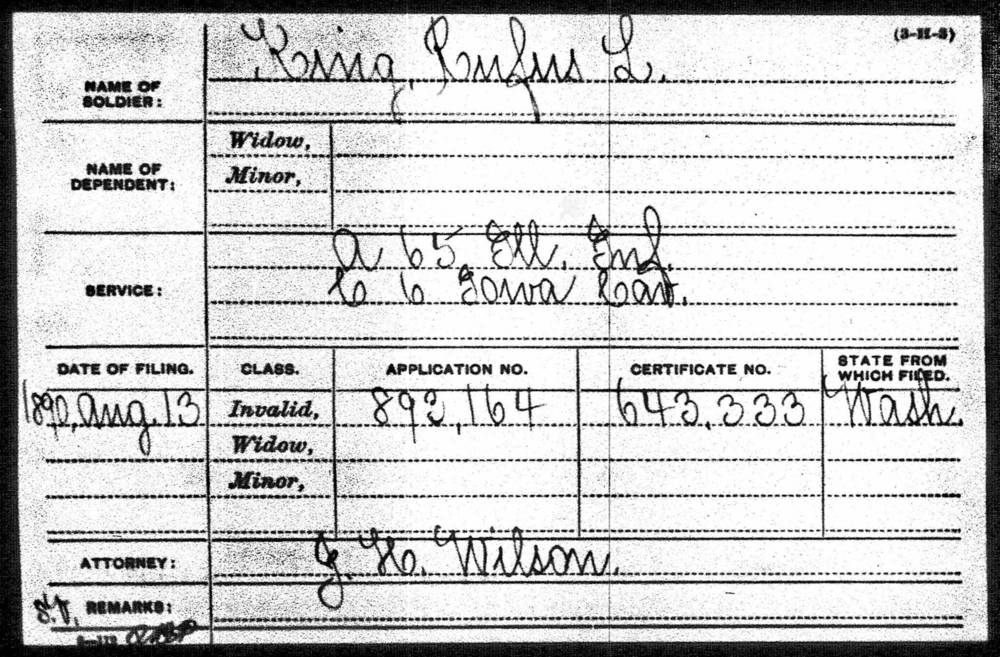 (3-11-3)
NAME OF SOLDIER: King, Rufus L.
NAME OF DEPENDENT:
Widow,
Minor,
SERVICE:
A 65 Ill. Inf.
C 6 Iowa Cav.
DATE OF FILING. CLASS. APPLICATION NO. CERTIFICATE NO. STATE FROM WHICH FILED.
1890, Aug. 13 Invalid, 893,164 643,333 Wash.
Widow,
Minor,
ATTORNEY: J. H. Wilson.
REMARKS: